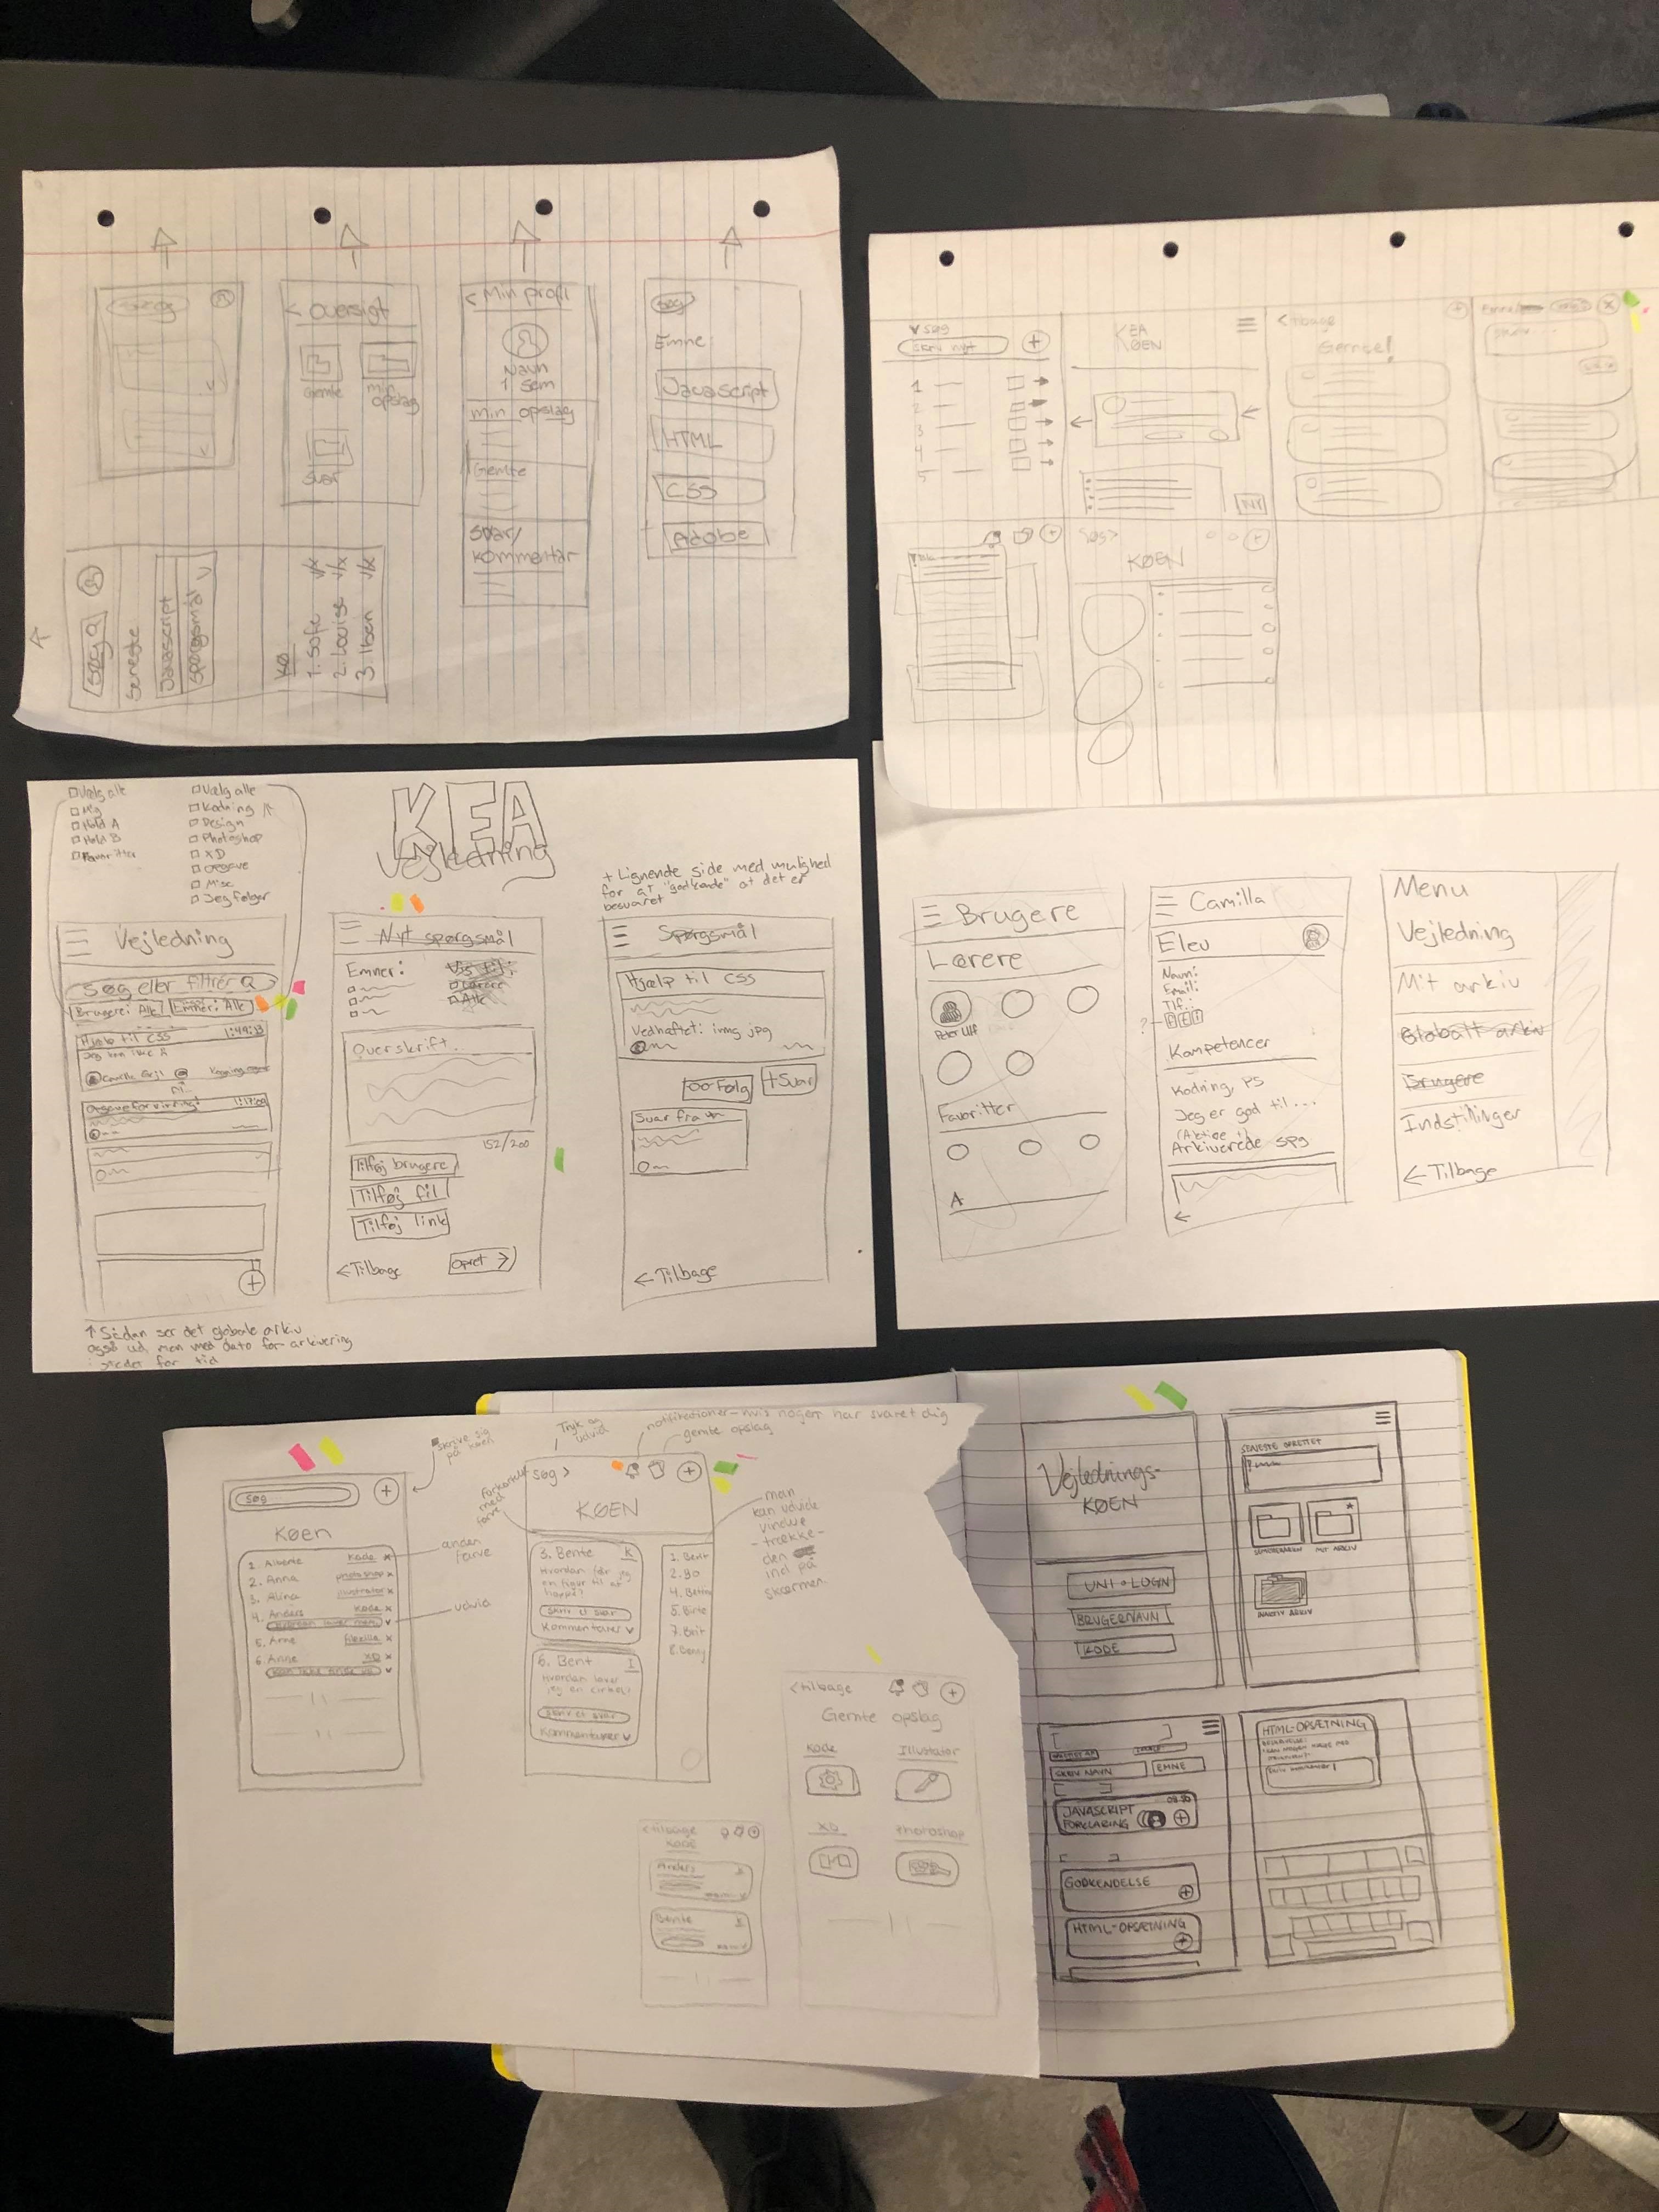 < Oversigt
Gemte
min
opslag
svar
< Min profil
Navn
1 Sem
min opslag
Gemte
Svar/
kommentar
søg
Emne
Javascript
HTML
CSS
Adobe
Søg
Seneste
Javascript
Spørgsmål
KØ
1. Sofie v/x
2. Louise v/x
3. Iben v/x
søg
skriv nyt
1
2
3
4
5
KEA
KØEN
<tilbage
Gemte!
Søg>
KØEN
Vælg alle
Mig
Hold A
Hold B
Favoritter
Vælg alle
Kodning
Design
Photoshop
XD
Opgave
Misc
Jeg følger
KEA
Vejledning
+ Lignende side med mulighed
for at "godkende" at det er
besvaret
Vejledning
Søg eller filtrer
Brugere: Alle
Emner: Alle
Hjælp til CSS 1:49:13
Opgaveforvirring! 1:17:09
↑ Sådan ser det globale arkiv
også ud, men med dato for arkivering
i stedet for tid
Nyt spørgsmål
Emner:
Vis til:
Lærere
Alle
Overskrift...
152/200
Tilføj brugere
Tilføj fil
Tilføj link
← Tilbage
Opret →
Spørgsmål
Hjælp til CSS
Vedhæftet: img.jpg
Følg
+Svar
Svar fra
← Tilbage
Brugere
Lærere
Peter Ulf
Favoritter
A
Camilla
Elev
Navn:
Email:
Tlf.:
?
Kompetencer
Kodning, PS
Jeg er god til...
(Aktive +)
Arkiverede spg
←
Menu
Vejledning
Mit arkiv
Globalt arkiv
Brugere
Indstillinger
← Tilbage
søg
skrive sig
på køen
Køen
1. Alberte Kode x
2. Anna photoshop x
3. Alina illustrator x
4. Anders Kode x
5. Anne
6. Anne XD x
anden
farve
udvid
Tryk og
udvid
notifikationer – hvis nogen har svaret dig
gemte opslag
forkortelse
med
farve
søg >
KØEN
3. Bente K
Hvordan får jeg
en figur til at
hoppe?
Skriv et svar
Kommentarer v
6. Bent I
Hvordan laver
jeg en cirkel?
Skriv et svar
Kommentarer v
man
kan udvide
vindue
- trække
den
ind på
skærmen
<tilbage
Kode
Anders
Bente K
<tilbage
Gemte opslag
Kode
Illustrator
XD
Photoshop
Vejlednings-
KØEN
UNI-LOGIN
BRUGERNAVN
KODE
SENESTE OPRETTET
MIT ARKIV
INAKTIV ARKIV
SKRIV NAVN
EMNE
JAVASCRIPT
FORKLARING
GODKENDELSE
HTML-OPSÆTNING
HTML-OPSÆTNING